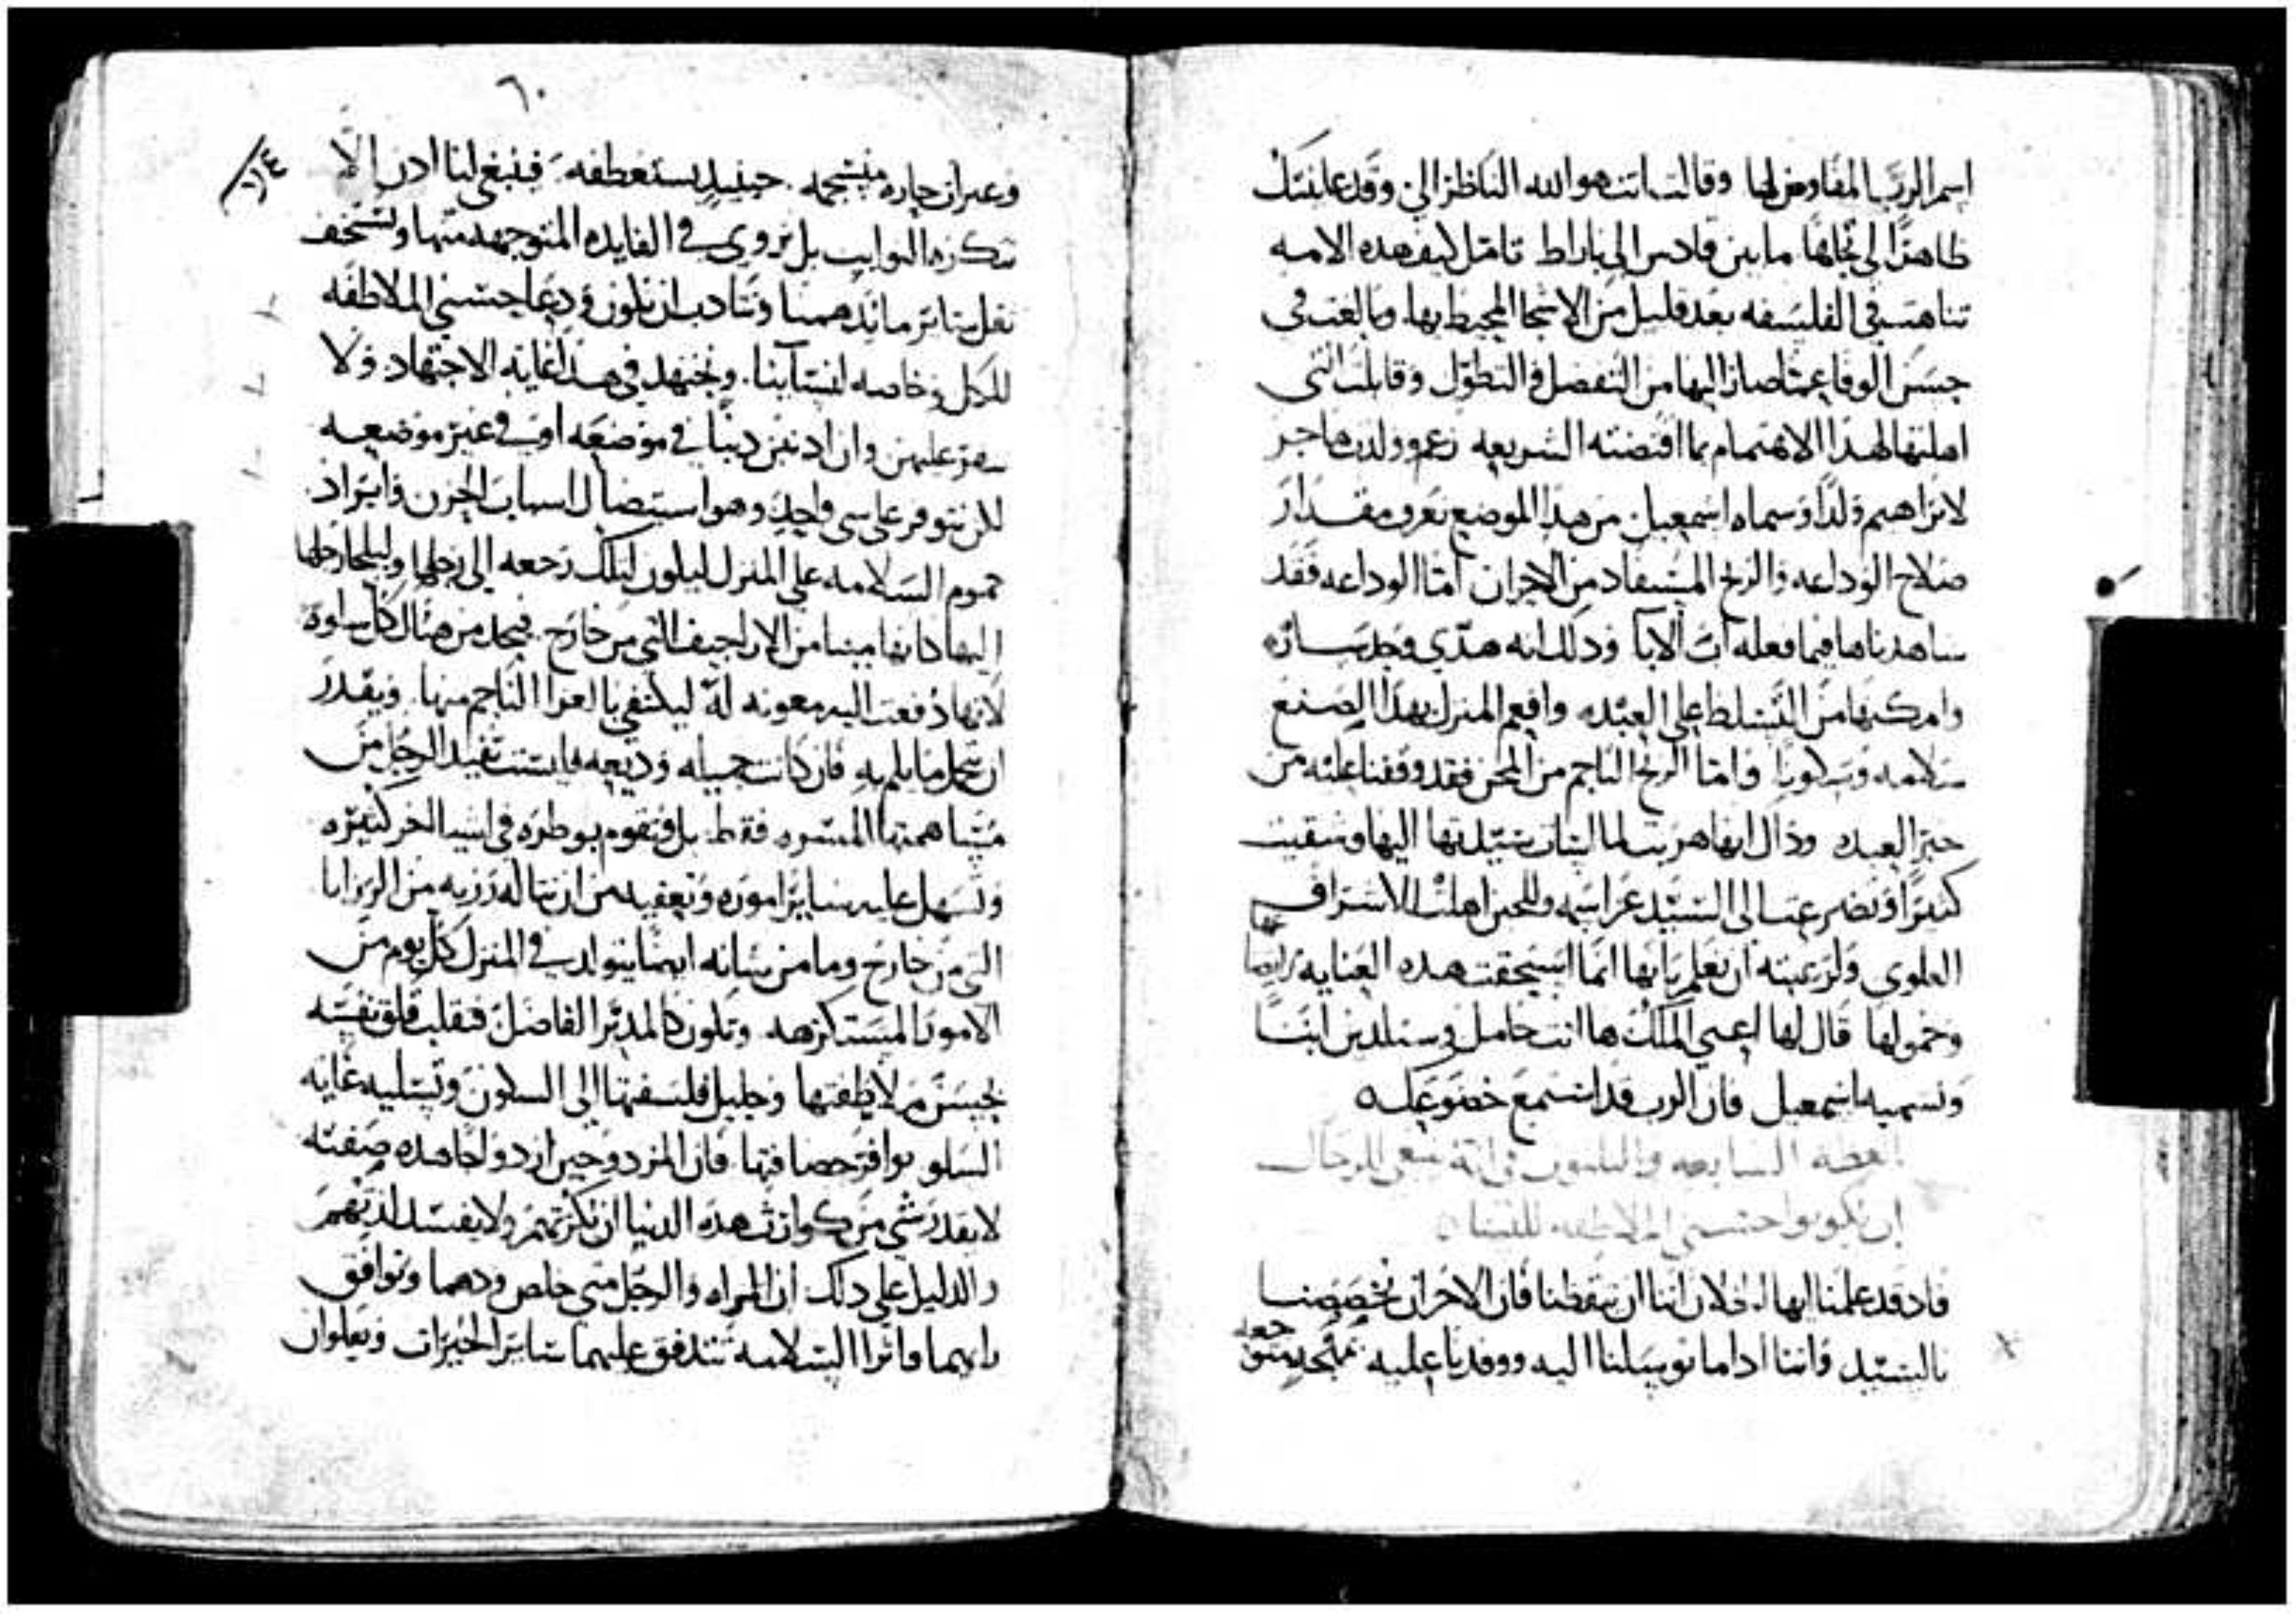 اسم الرب المفاوض لها وقالت انت هو الله الناظر الي وقد عاينتك
ظاهرًا لي تجاهًا ما بين قادس الي باراط تامل كيف هذه الامه
تناهت في الفلسفه بعد قليل من الاشجا المحيط بها وبالغت في
حسن الوفا عما صار اليها من التفضل والتطول وقابلت التي
اهلتها لهدا الاهتمام بما اقتضته الشريعه زعم وولدت هاجر
لابراهيم ولدًا وسماه اسمعيل من هدا الموضع نعرف مقدار
صلاح الوداعه والربح المستفاد من الاحزان امّا الوداعه فقد
شاهدناها فيما فعله اب الابا ودلك انه هدّي وجد ساره
وامكنها من التسلط علي العبده وافعم المنزل بهدا الصنع
سلامه وسكونًا وامّا الربح الناجم من المحن فقد وقفنا عليه من
خبر العبده وداك انها هربت لما اشتات سيدتها اليها وشقيت
كثيرًا وتضرعت الي السيد عز اسمه وللحين اهلت للاشراف
العلوي ولرغبته ان تعلم بانها انما استحقت هده العنايه
وخمولها قال لها اعني الملك ها انت حامل وستلدين ابنًا
وتسميه اسمعيل فان الرب قد استمع خضوعك
العظه السابعه والثلثون في انه ينبغي للرجال
ان يكونوا حسني الملاطفه للنسا
فاد قد علمنا ايها الخلان اننا ان تيقظنا فان الاحزان تخصصنا
بالسيد واننا ادا ما توسلنا اليه ووفدنا عليه
٦٠
وعبرات حاره منسجمه حينيد يستعطفه فينبغي لنا ادن الّا
نتكره النوايب بل نروي في الفايده المتوجهه منها ونستخف
نقل ساير ما يدهمنا ونتادب ان نكون ودعا حسني الملاطفه
للكل وخاصه لنسآينا ونجتهد في هدا غايه الاجتهاد ولا
عليهن وان ادنبن دنبًا في موضعه او في غير موضعه
لكن نتوفر علي شي واحد وهو استيصال اسباب الحزن وايراد
عموم السلامه علي المنزل ليكون لتلك رجعه الي رجلها وليلجا رجلها
اليها كانها مينا من الاراجيف التي من خارج فيجد من هناك كل سلوة
لانها دفعت اليه معونه له ليكتفي بالعزا الناجم منها ويقدر
ان يحمل ما يلم به فان كانت جميله وديعه فليست تفيد الرجل من
مساهمتها المسره فقط بل وتقوم بوطره في اشيا اخر كثيره
وتسهل عليه ساير اموره وتعفيه من ان تناله رزيه من الرزايا
التي من خارج وما من شانه ايضًا يتولد في المنزل كل يوم من
الامور المستكرهه وتكون كالمدبر الفاضل فتقلب قلق نفسه
بحسن ملاطفتها وجليل فلسفتها الي السكون وتسليه غايه
السلو بوافر حصافتها فان المزدوجين ازدواجا هده صفته
لا يقدر شي من كوارث هده الدنيا ان تكرثهم ولا يفسد لدتهم
والدليل علي دلك ان المراه والرجل متي خلص ودهما وتوافق
رايهما واثرا السلامه تتدفق عليهما ساير الخيرات ويعلوان